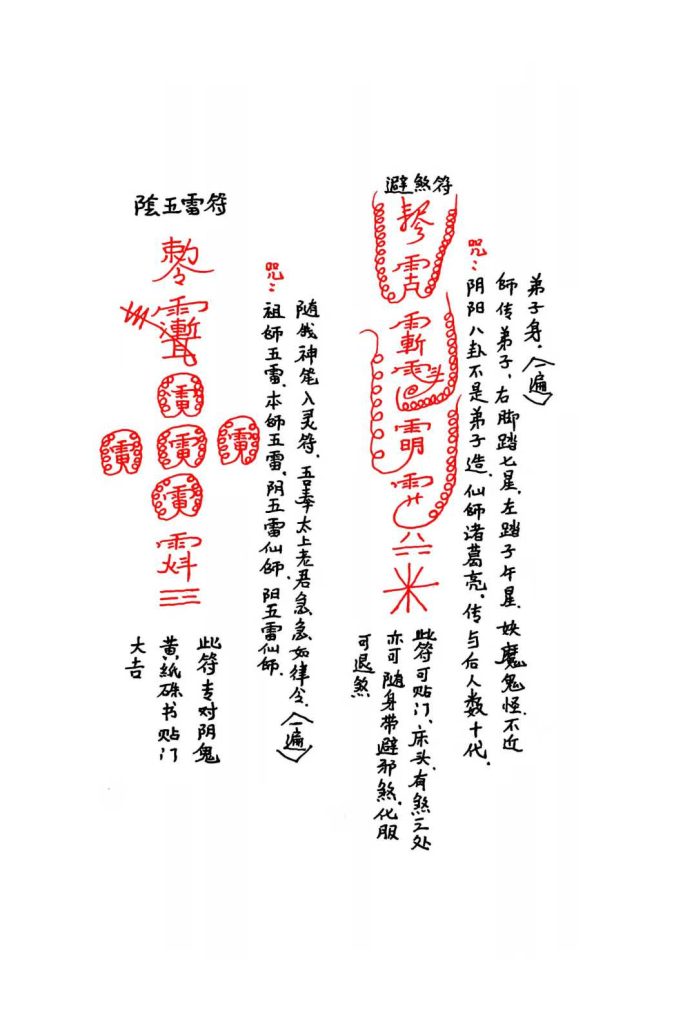 避煞符
咒:
阴阳八卦不是弟子造.仙師诸葛亮.传与后人数十代.
師传弟子,右脚踏七星.左踏子午星.妖魔鬼怪.不近
弟子身.(一遍)
此符可贴门、床头.有煞之处
亦可随身带避邪煞.化服
可退煞
陰五雷符
咒:
祖師五雷.本師五雷.阴五雷仙師.阳五雷仙師.
随我神笔入灵符.吾奉太上老君急急如律令.(一遍)
此符专对阴鬼
黄紙硃书贴门
大吉